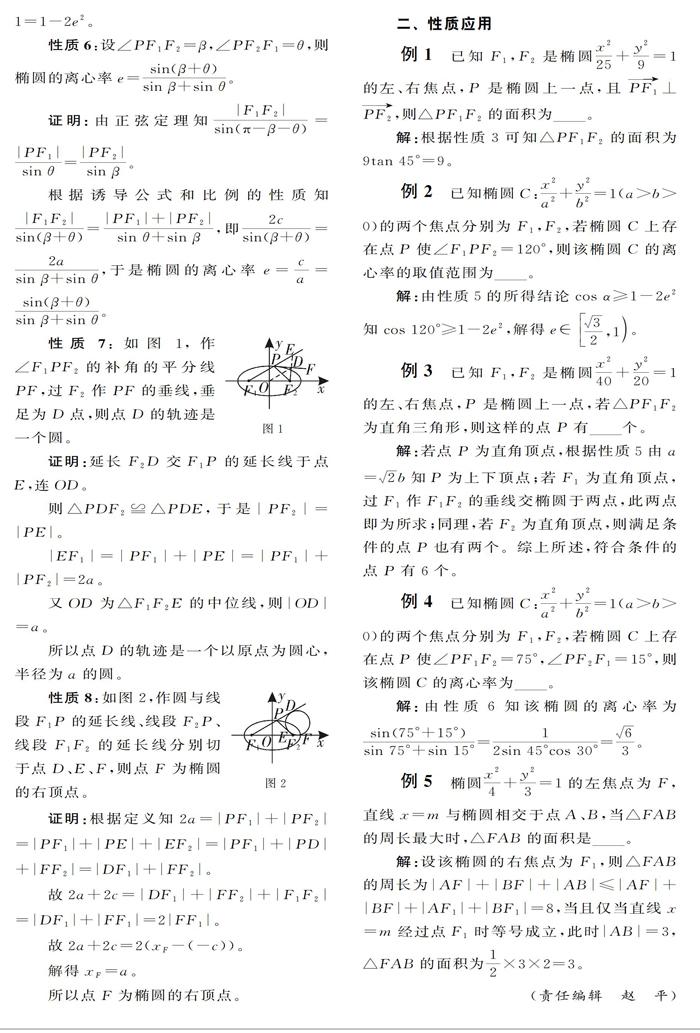 1=1-2e²。
性质6:设∠PF₁F₂=β,∠PF₂F₁=θ,则
椭圆的离心率 e=sin(β+θ)/(sin β+sin θ)。
证明:由正弦定理知 |F₁F₂|/sin(π-β-θ) =
|PF₁|/sin θ=|PF₂|/sin β。
根据诱导公式和比例的性质知
|F₁F₂|/sin(β+θ)=(|PF₁|+|PF₂|)/(sin θ+sin β),即 2c/sin(β+θ)=
2a/(sin β+sin θ),于是椭圆的离心率 e=c/a=
sin(β+θ)/(sin β+sin θ)。
性质7:如图1,作
∠F₁PF₂的补角的平分线
PF,过F₂作PF的垂线,垂
足为D点,则点D的轨迹是
一个圆。
y E
P D F
F₁ O F₂ x
图1
证明:延长F₂D交F₁P的延长线于点
E,连OD。
则△PDF₂≌△PDE,于是|PF₂|=
|PE|。
|EF₁|=|PF₁|+|PE|=|PF₁|+
|PF₂|=2a。
又OD为△F₁F₂E的中位线,则|OD|
=a。
所以点D的轨迹是一个以原点为圆心,
半径为a的圆。
性质8:如图2,作圆与线
段F₁P的延长线、线段F₂P、
线段F₁F₂的延长线分别切
于点D、E、F,则点F为椭圆
的右顶点。
y
P D
F₁ O E F₂ F x
图2
证明:根据定义知2a=|PF₁|+|PF₂|
=|PF₁|+|PE|+|EF₂|=|PF₁|+|PD|
+|FF₂|=|DF₁|+|FF₂|。
故2a+2c=|DF₁|+|FF₂|+|F₁F₂|
=|DF₁|+|FF₁|=2|FF₁|。
故2a+2c=2(x_F-(-c))。
解得x_F=a。
所以点F为椭圆的右顶点。
二、性质应用
例1 已知F₁,F₂是椭圆x²/25+y²/9=1
的左、右焦点,P是椭圆上一点,且→PF₁⊥
→PF₂,则△PF₁F₂的面积为____。
解:根据性质3可知△PF₁F₂的面积为
9tan 45°=9。
例2 已知椭圆C:x²/a²+y²/b²=1(a>b>
0)的两个焦点分别为F₁,F₂,若椭圆C上存
在点P使∠F₁PF₂=120°,则该椭圆C的离
心率的取值范围为____。
解:由性质5的所得结论cos α≥1-2e²
知cos 120°≥1-2e²,解得e∈[√3/2,1)。
例3 已知F₁,F₂是椭圆x²/40+y²/20=1
的左、右焦点,P是椭圆上一点,若△PF₁F₂
为直角三角形,则这样的点P有____个。
解:若点P为直角顶点,根据性质5由a
=√2b知P为上下顶点;若F₁为直角顶点,
过F₁作F₁F₂的垂线交椭圆于两点,此两点
即为所求;同理,若F₂为直角顶点,则满足条
件的点P也有两个。综上所述,符合条件的
点P有6个。
例4 已知椭圆C:x²/a²+y²/b²=1(a>b>
0)的两个焦点分别为F₁,F₂,若椭圆C上存
在点P使∠PF₁F₂=75°,∠PF₂F₁=15°,则
该椭圆C的离心率为____。
解:由性质6知该椭圆的离心率为
sin(75°+15°)/(sin 75°+sin 15°)=1/(2sin 45°cos 30°)=√6/3。
例5 椭圆x²/4+y²/3=1的左焦点为F,
直线x=m与椭圆相交于点A、B,当△FAB
的周长最大时,△FAB的面积是____。
解:设该椭圆的右焦点为F₁,则△FAB
的周长为|AF|+|BF|+|AB|≤|AF|+
|BF|+|AF₁|+|BF₁|=8,当且仅当直线x
=m经过点F₁时等号成立,此时|AB|=3,
△FAB的面积为1/2×3×2=3。
(责任编辑 赵 平)